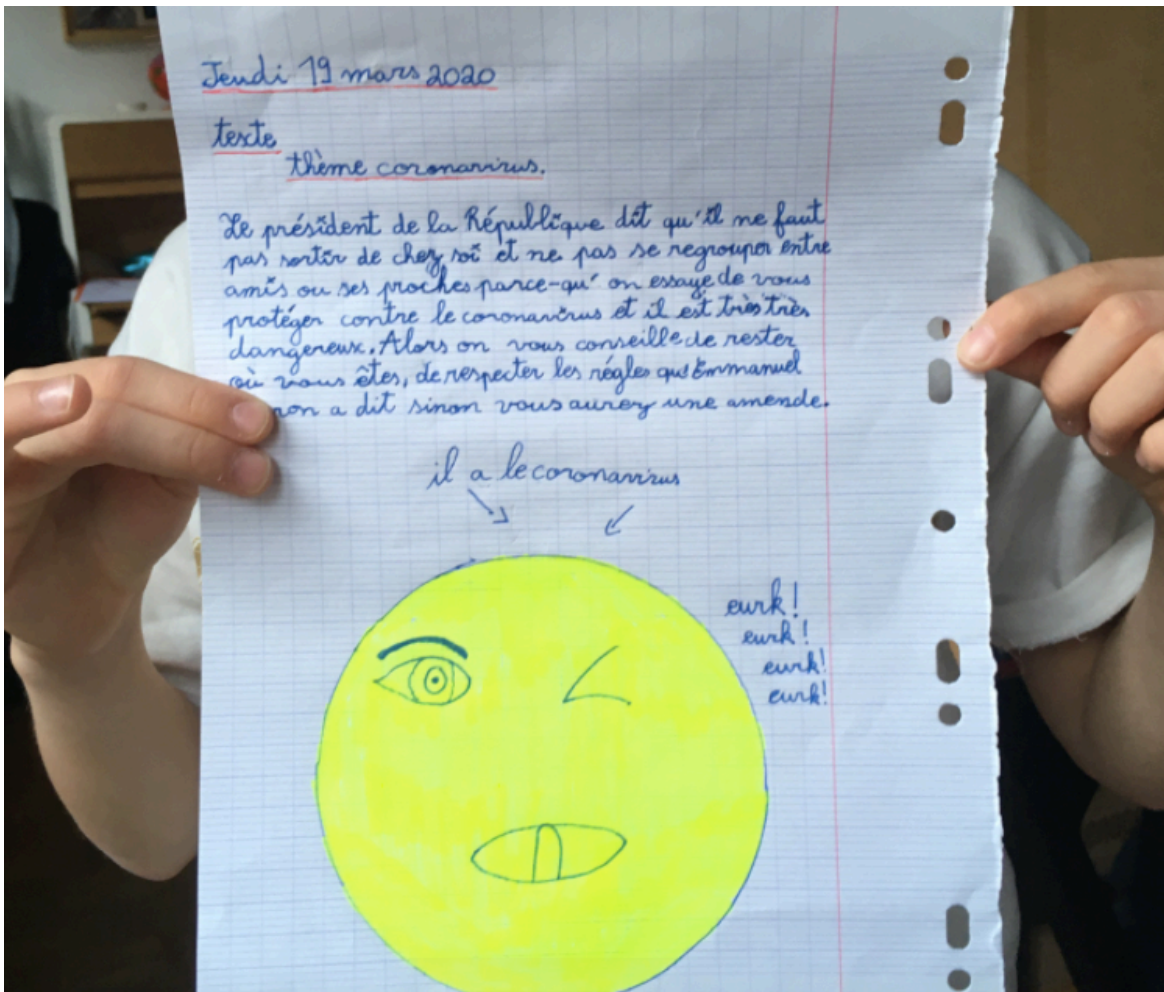 Jeudi 19 mars 2020
texte
thème coronavirus.
Le président de la République dit qu'il ne faut
pas sortir de chez soi et ne pas se regrouper entre
amis ou ses proches parce-qu'on essaye de vous
protéger contre le coronavirus et il est très très
dangereux. Alors on vous conseille de rester
où vous êtes, de respecter les régles qu'Emmanuel
ron a dit sinon vous aurez une amende.
il a le coronavirus
eurk!
eurk!
eurk!
eurk!